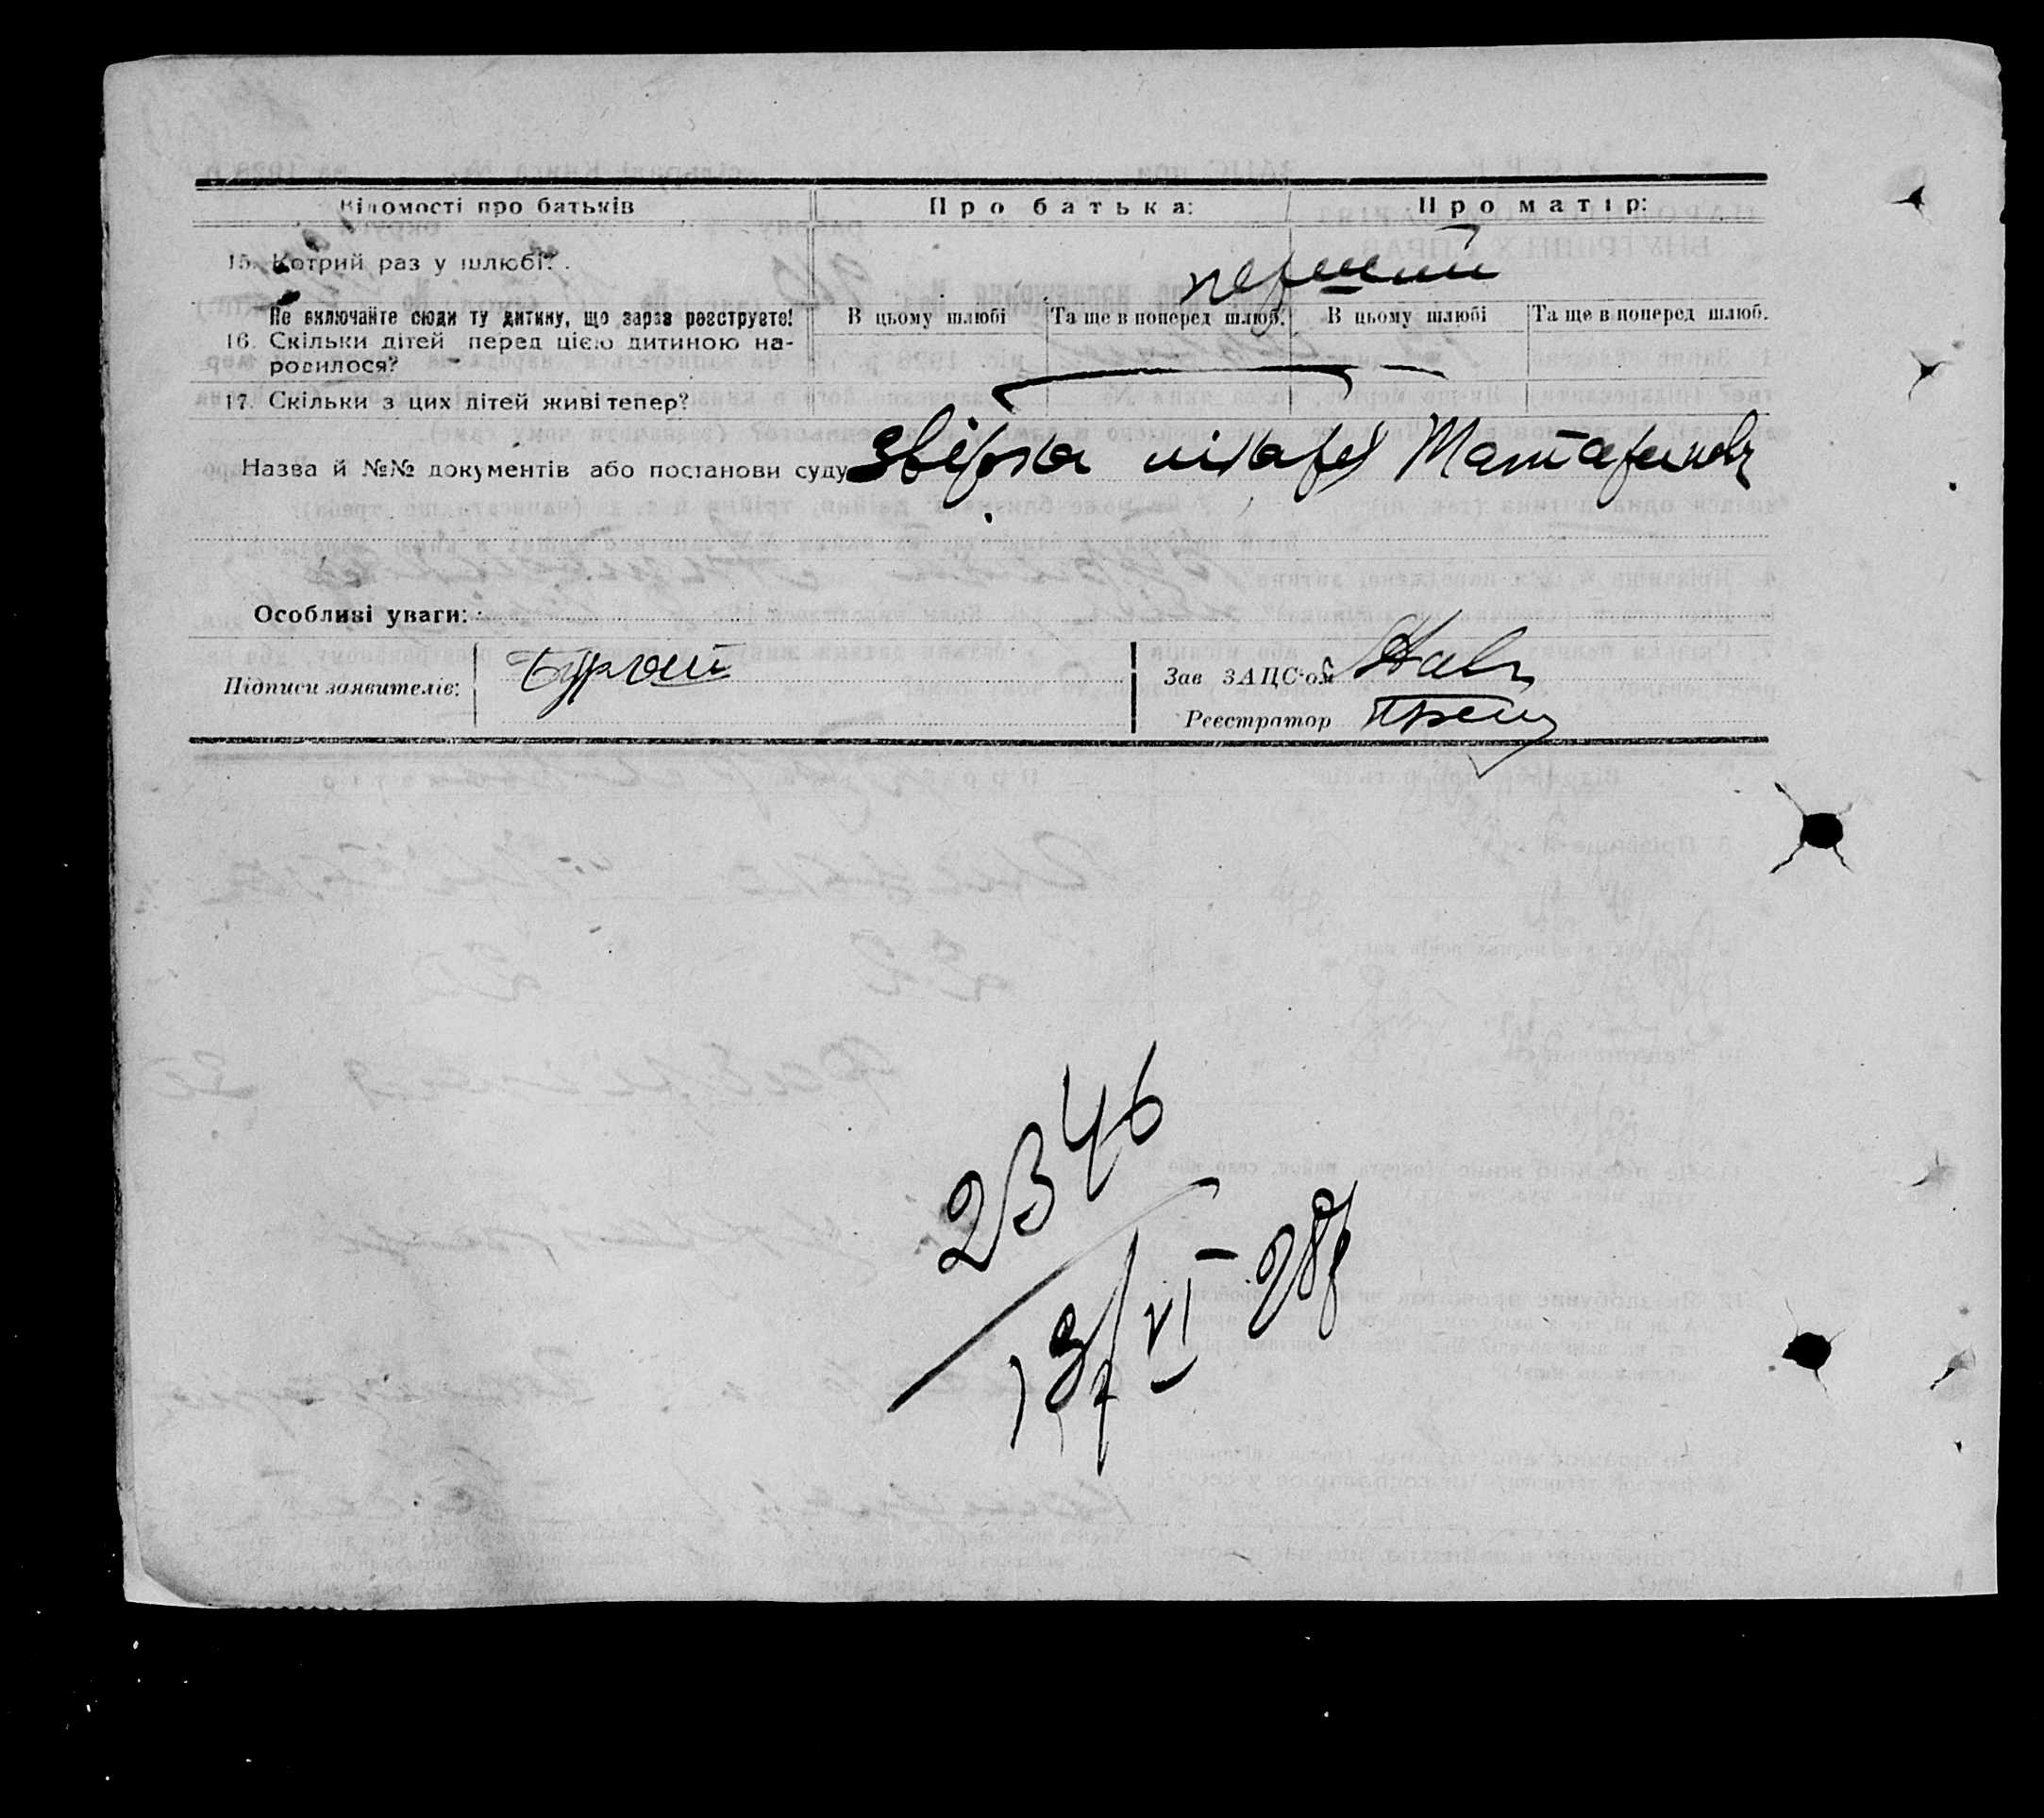 Відомості про батьків Про батька: Про матір:
15. Котрий раз у шлюбі? перший
Не включайте сюди ту дитину, що зараз реєструєте! В цьому шлюбі Та ще в поперед шлюб. В цьому шлюбі Та ще в поперед шлюб.
16. Скільки дітей перед цією дитиною на-
родилося?
17. Скільки з цих дітей живі тепер?
Назва й №№ документів або постанови суду
Особливі уваги:
Підписи заявителів: Зав ЗАЦС'ом
Реєстратор
2346
13/VI-28р